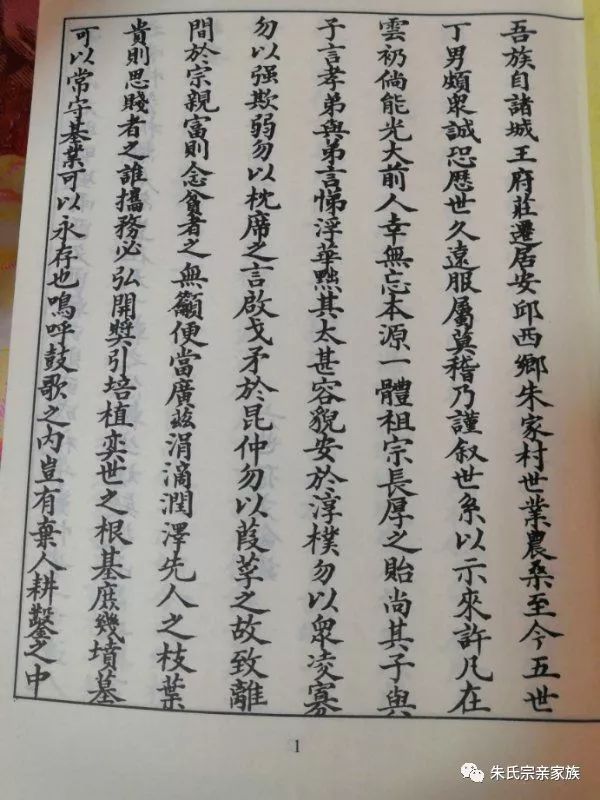 吾族自諸城王府莊遷居安邱西鄉朱家村世業農桑至今五世
丁男頗眾誠恐歷世久遠服屬莫稽乃謹叙世系以示來許凡在
雲礽倘能光大前人幸無忘本源一體祖宗長厚之貽尚其子與
子言孝弟與弟言悌浮華黜其太甚容貌安於淳樸勿以眾凌寡
勿以强欺弱勿以枕席之言啟戈矛於昆仲勿以葭莩之故致離
間於宗親富則念貧者之無籲便當廣茲涓滴潤澤先人之枝葉
貴則思賤者之誰攜務必弘開獎引培植奕世之根基庶幾墳墓
可以常守基業可以永存也嗚呼鼓歌之內豈有棄人耕鑿之中
1
朱氏宗亲家族